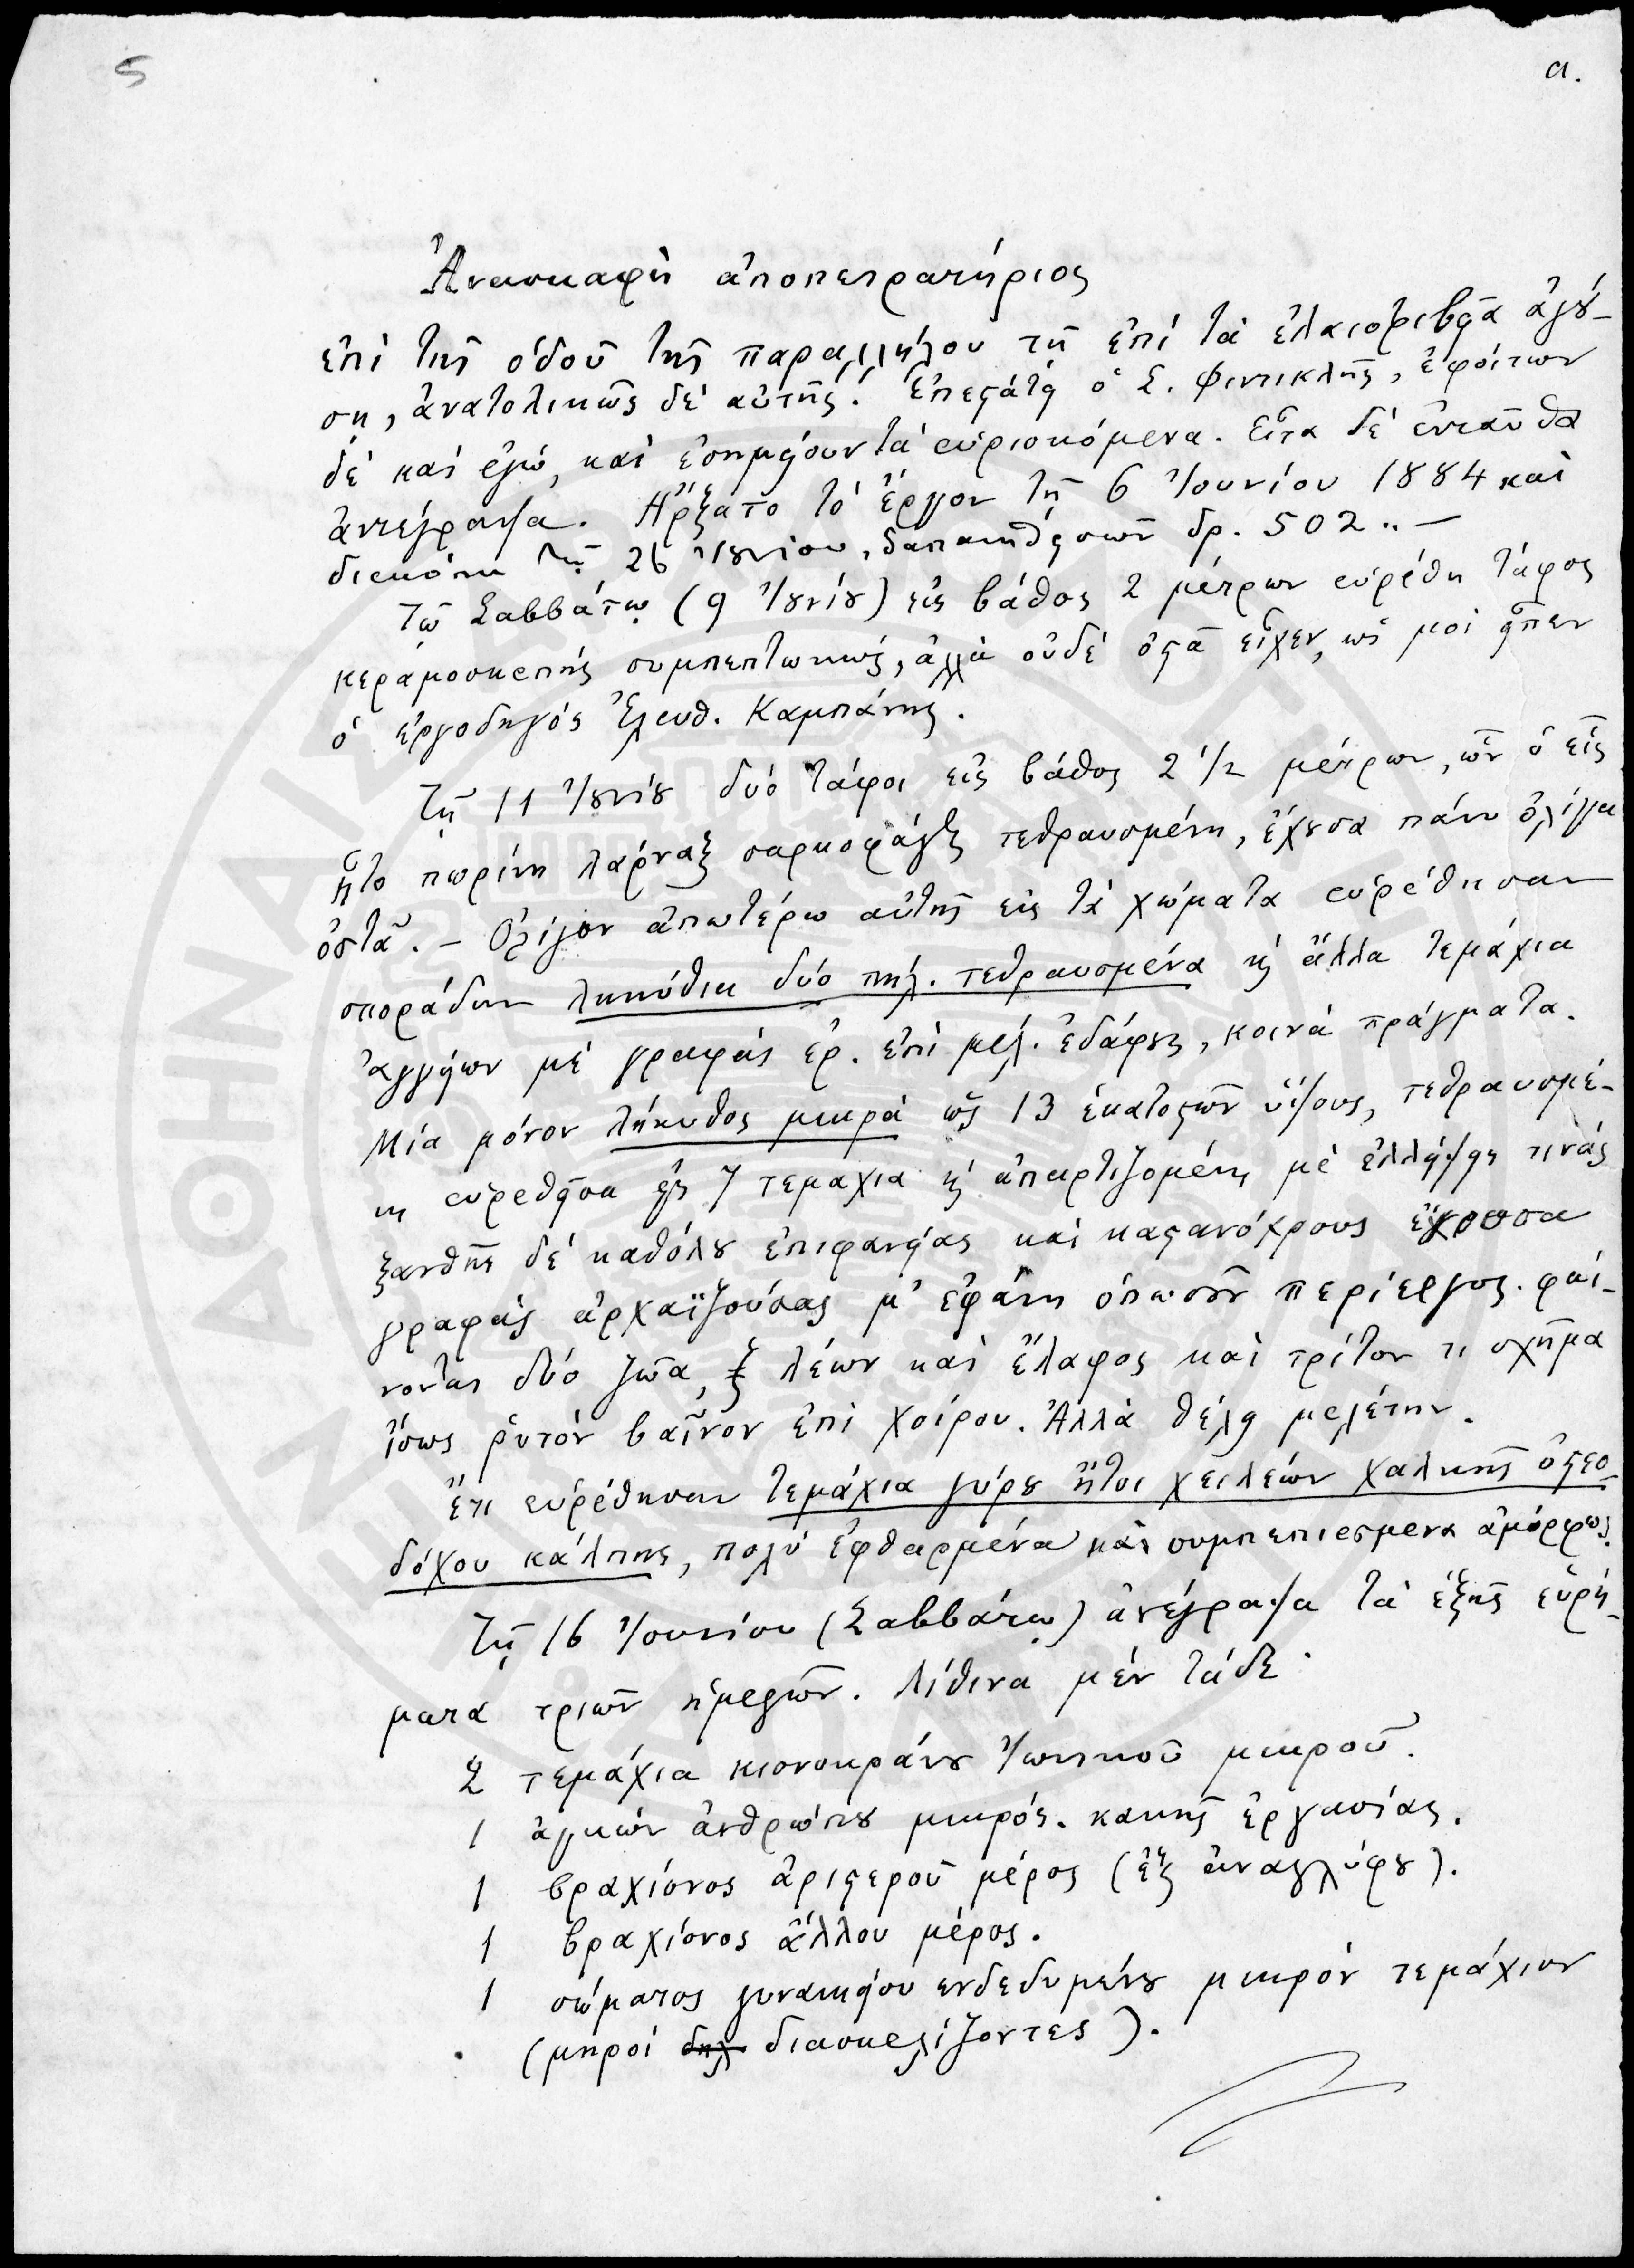 5
α.
Ἀνασκαφὴ ἀποπειρατήριος
ἐπὶ τῆς ὁδοῦ τῆς παραλλήλου τῇ ἐπὶ τὰ ἐλαιοτριβεῖα ἀγού-
σῃ, ἀνατολικῶς δὲ αὐτῆς. Ἐπεστάτει ὁ Σ. Φιντικλῆς, ἐφοίτων
δὲ καὶ ἐγώ, καὶ ἐσημείουν τὰ εὑρισκόμενα. Εἶτα δὲ ἐνταῦθα
ἀντέγραψα. Ἤρξατο τὸ ἔργον τῇ 6 Ἰουνίου 1884 καὶ
διεκόπη τῇ 26 Ἰουνίου, δαπανηθεισῶν δρ. 502 ..—
Τῷ Σαββάτῳ (9 Ἰουνίου) εἰς βάθος 2 μέτρων εὑρέθη τάφος
κεραμοσκεπὴς συμπεπτωκώς, ἀλλὰ οὐδὲ ὀστᾶ εἶχεν, ὥς μοι εἶπεν
ὁ ἐργοδηγὸς Ἐλευθ. Καμπάνης.
Τῇ 11 Ἰουνίου δύο τάφοι εἰς βάθος 2 1/2 μέτρων, ὧν ὁ εἷς
ἦτο πωρίνη λάρναξ σαρκοφάγος τεθραυσμένη, ἔχουσα πάνυ ὀλίγα
ὀστᾶ. – Ὀλίγον ἀπωτέρω αὐτῆς εἰς τὰ χώματα εὑρέθησαν
σποράδην ληκύθια δύο πήλ. τεθραυσμένα κ̀ ἄλλα τεμάχια
ἀγγείων μὲ γραφὰς ἐρ. ἐπὶ μελ. ἐδάφους, κοινὰ πράγματα.
Μία μόνον λήκυθος μικρὰ ὡς 13 ἑκατοστῶν ὕψους, τεθραυσμέ-
νη εὑρεθεῖσα εἰς 7 τεμάχια κ̀ ἀπαρτιζομένη μὲ ἐλλείψεις τινάς
ξανθῆς δὲ καθόλου ἐπιφανείας καὶ καστανόχρους ἔχουσα
γραφὰς ἀρχαϊζούσας μ' ἐφάνη ὁπωσοῦν περίεργος. φαί-
νονται δύο ζῶα, λέων καὶ ἔλαφος καὶ τρίτον τι σχῆμα
ἴσως ῥυτὸν βαῖνον ἐπὶ χοίρου. Ἀλλὰ θέλει μελέτην.
Ἔτι εὑρέθησαν τεμάχια γύρου ἤτοι χειλέων χαλκῆς ὀστεο-
δόχου κάλπης, πολὺ ἐφθαρμένα καὶ συμπεπιεσμένα ἀμόρφως.
Τῇ 16 Ἰουνίου (Σαββάτῳ) ἀνέγραψα τὰ ἑξῆς εὑρή-
ματα τριῶν ἡμερῶν. Λίθινα μὲν τάδε·
2 τεμάχια κιονοκράνου Ἰωνικοῦ μικροῦ.
1 ἀγκὼν ἀνθρώπου μικρός. κακῆς ἐργασίας.
1 βραχίονος ἀριστεροῦ μέρος (ἐξ ἀναγλύφου).
1 βραχίονος ἄλλου μέρος.
1 σώματος γυναικείου ενδεδυμένου μικρὸν τεμάχιον
(μηροὶ δηλ διασκελίζοντες).